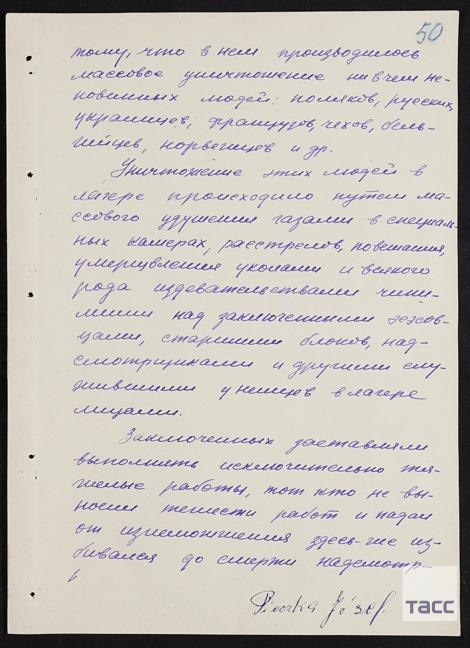 50
тому, что в нем производилось
массовое уничтожение ни в чем не-
повинных людей: поляков, русских,
украинцев, французов, чехов, бель-
гийцев, норвежцев и др.
Уничтожение этих людей в
лагере происходило путем ма-
ссового удушения газами в специаль-
ных камерах, расстрелов, повешания,
умерщвления уколами и всякого
рода издевательствами чини-
мыми над заключенными эсэсов-
цами, старшими блоков, над-
смотрщиками и другими слу-
жившими у немцев в лагере
лицами.
Заключенных заставляли
выполнять исключительно тя-
желые работы, тот кто не вы-
носил тяжести работ и падал
от изнеможения здесь-же из-
бивался до смерти надсмотр-
Pieczka Józef.
ТАСС